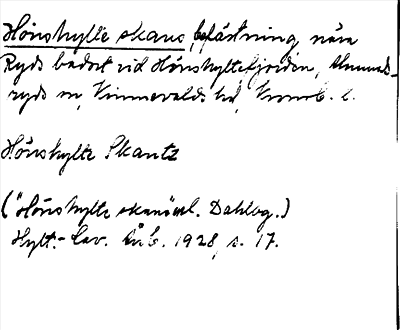 Hönshylte skans, befästning nära
Ryds badort vid Hönshyltefjorden, Almunds-
ryds sn, Kinnevalds hd, Kronob. l.
Hönshylte Skantz
("Hönshylte skans" Dahlog.)
Hylt.-Cav. Årb. 1928, s. 17.